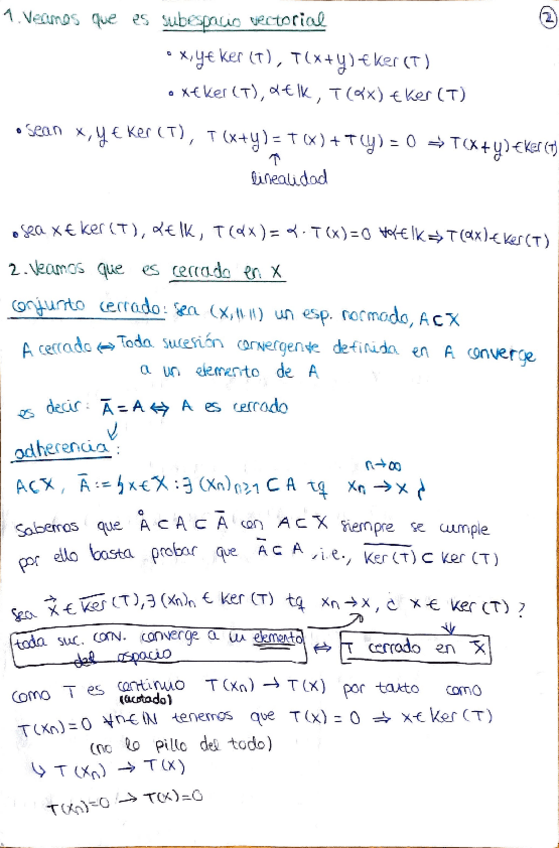 1. Veamos que es subespacio vectorial
2
• x,y ∈ Ker(T), T(x+y) ∈ Ker(T)
• x ∈ Ker(T), α ∈ lK, T(αx) ∈ Ker(T)
• sean x,y ∈ Ker(T), T(x+y) = T(x) + T(y) = 0 ⇒ T(x+y) ∈ Ker(T)
↑
linealidad
• sea x ∈ Ker(T), α ∈ lK, T(αx) = α · T(x) = 0 ∀α ∈ lK ⇒ T(αx) ∈ Ker(T)
2. Veamos que es cerrado en X
conjunto cerrado: sea (X, || ||) un esp. normado, A ⊂ X
A cerrado ↔ Toda sucesión convergente definida en A converge
a un elemento de A
es decir: Ā = A ⇔ A es cerrado
adherencia:
A ⊂ X, Ā := { x ∈ X : ∃ (xn)n≥1 ⊂ A tq xn → x } n→∞
Sabemos que Å ⊂ A ⊂ Ā con A ⊂ X siempre se cumple
por ello basta probar que Ā ⊂ A, i.e., \overline{Ker(T)} ⊂ Ker(T)
Sea x ∈ \overline{Ker}(T), ∃ (xn)n ∈ Ker(T) tq xn → x, ¿ x ∈ Ker(T)?
toda suc. conv. converge a un elemento del espacio ↔ T cerrado en X
como T es continuo (acotado) T(xn) → T(x) por tanto como
T(xn) = 0 ∀n ∈ lN tenemos que T(x) = 0 ⇒ x ∈ Ker(T)
(no lo pillo del todo)
↳ T(xn) → T(x)
T(xn)=0 → T(x)=0